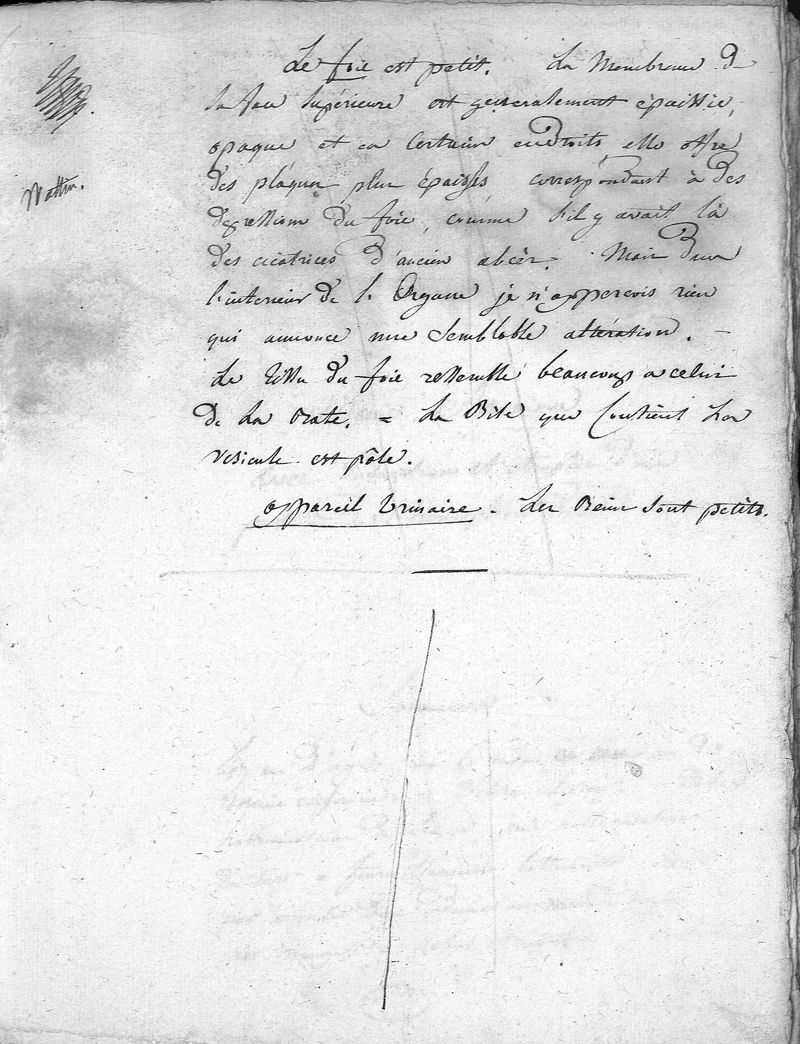 Le foie est petit. La Membrane de
la face Supérieure est généralement épaissie,
opaque et en certains endroits, elle offre
des plaques plus épaisses correspondant à des
depressions du foie, comme s'il y avait là
des cicatrices d'ancien abcès. Mais dans
l'interieur de l'Organe je n'apperçois rien
qui annonce une Semblable altération. –
Le tissu du foie ressemble beaucoup a celui
de la rate. = La Bile que Contient La
vesicule est pâle.
appareil Urinaire - Les Reins sont petits.